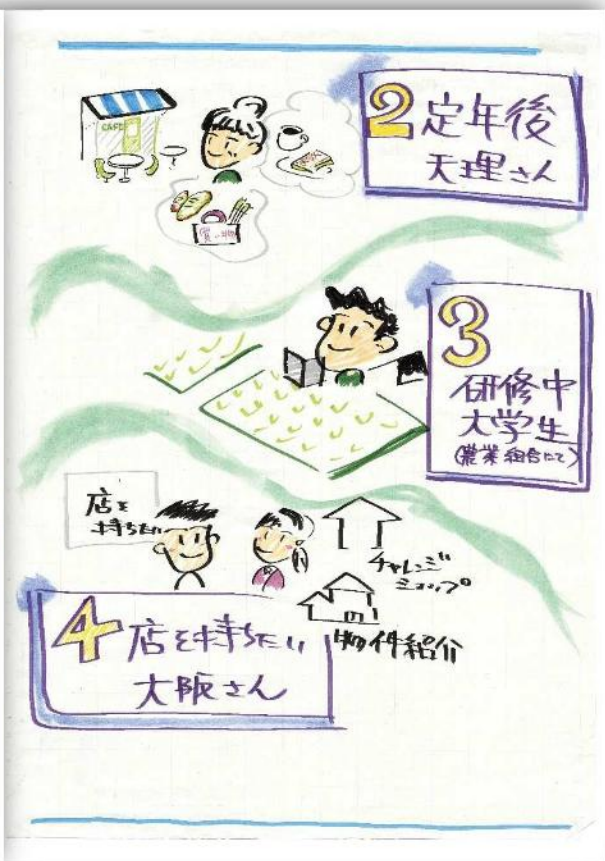 CAFE
2 定年後
天理さん
買い物
3
研修中
大学生
(農業組合にて)
店を
持ちたい
チャレンジ
ショップ
物件紹介
4 店を持ちたい
大阪さん